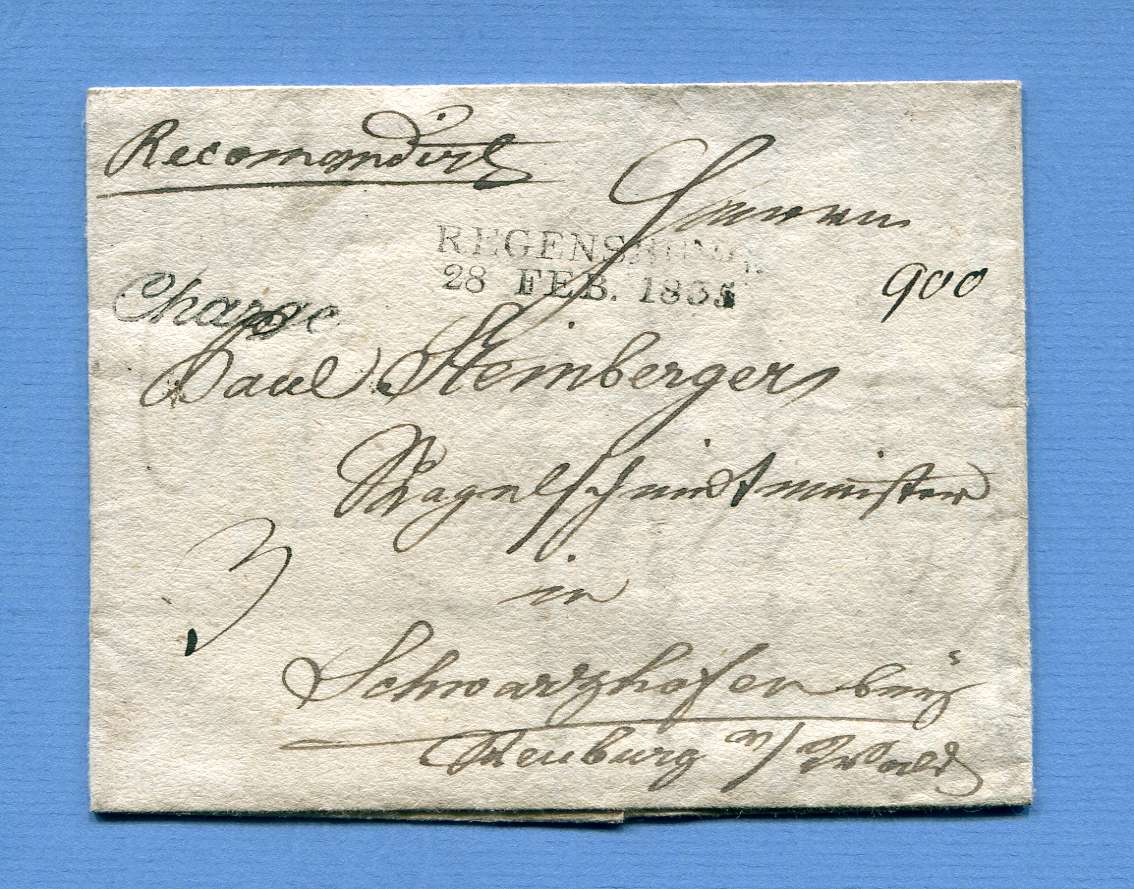 Recomandirt
Herrn
REGENSBURG
28 FEB. 1835
900
Chargé
Paul Steinberger
Nagelschmidtmeister
3
in
Schwarzhofen bey
Neuburg v/ Wald